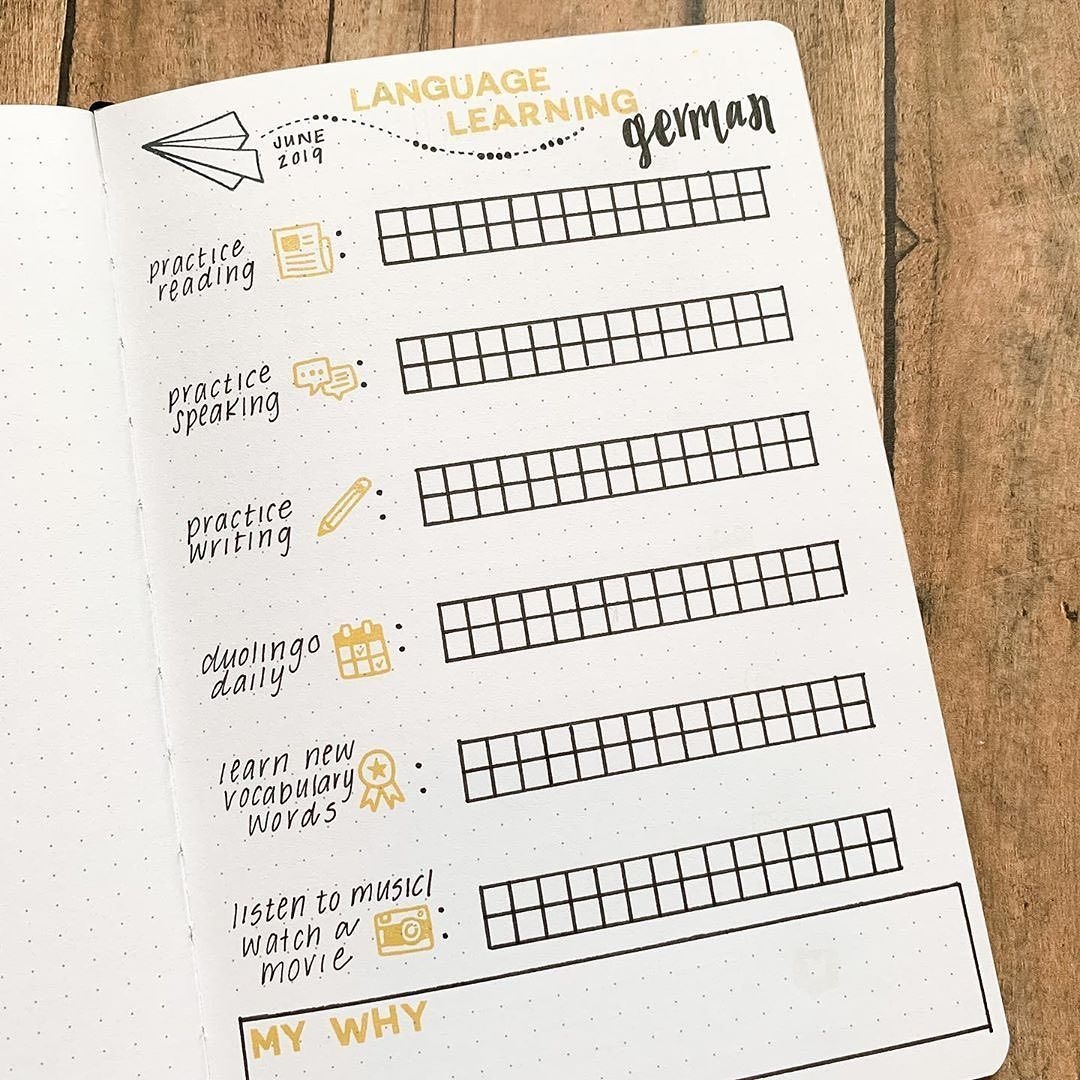 LANGUAGE
LEARNING
german
JUNE
2019
practice
reading
:
practice
speaking
:
practice
writing
:
duolingo
daily
:
learn new
vocabulary
words
:
listen to music/
watch a
movie
:
MY WHY